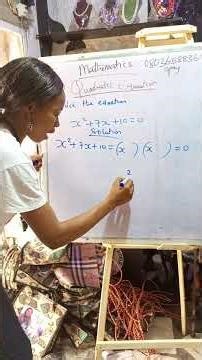 Mathematics
Quadratic Equation
the equation
x²+7x+10=0
Solution
x²+7x+10=(x )(x )=0
2